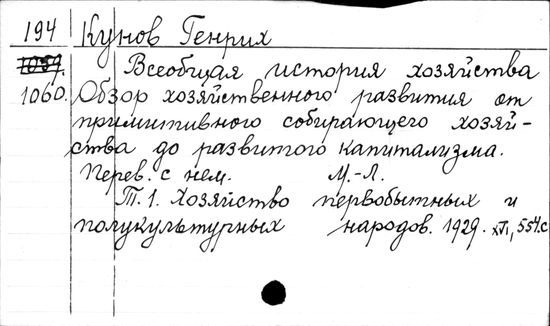 194 Кунов Генрих
1059. Всеобщая история хозяйства
1060. Обзор хозяйственного развития от
примитивного собирающего хозяй-
ства до развитого капитализма.
Перев. с нем. М.-Л.
Т. 1. Хозяйство первобытных и
полукультурных народов. 1929. XVI, 554 с